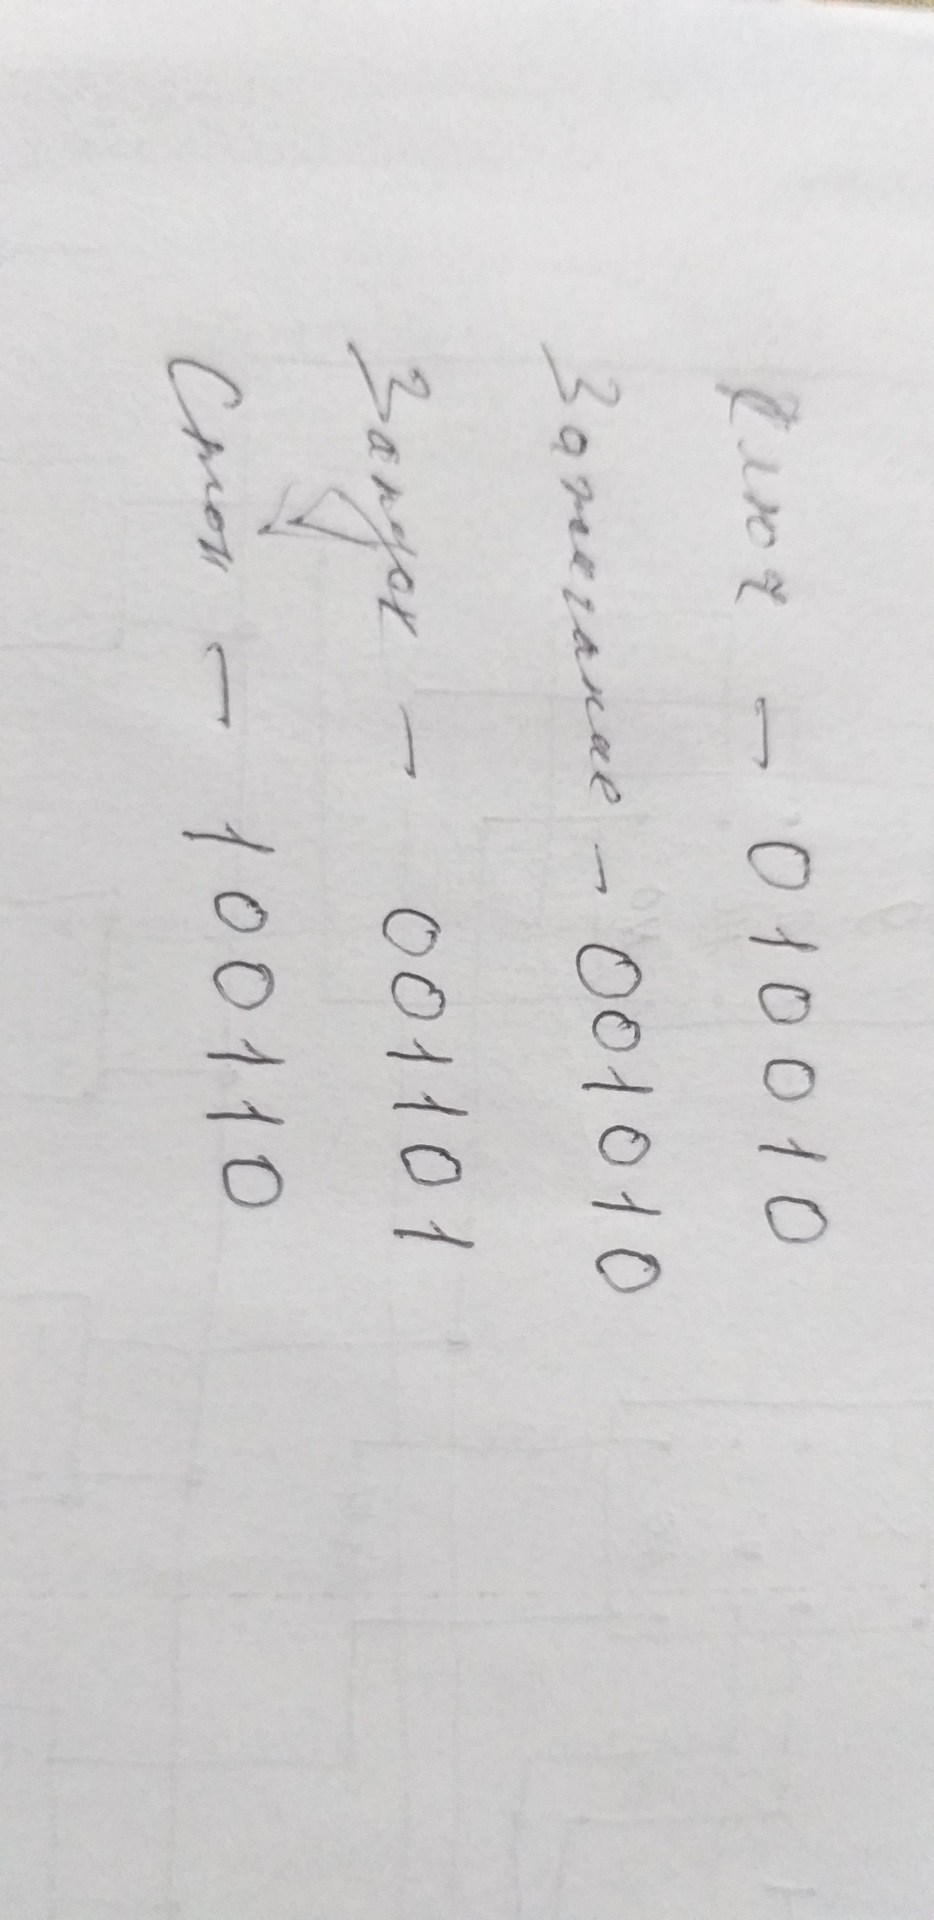 Ключ - 010010
Зажигание - 001010
Запуск - 001101
Стоп - 100110